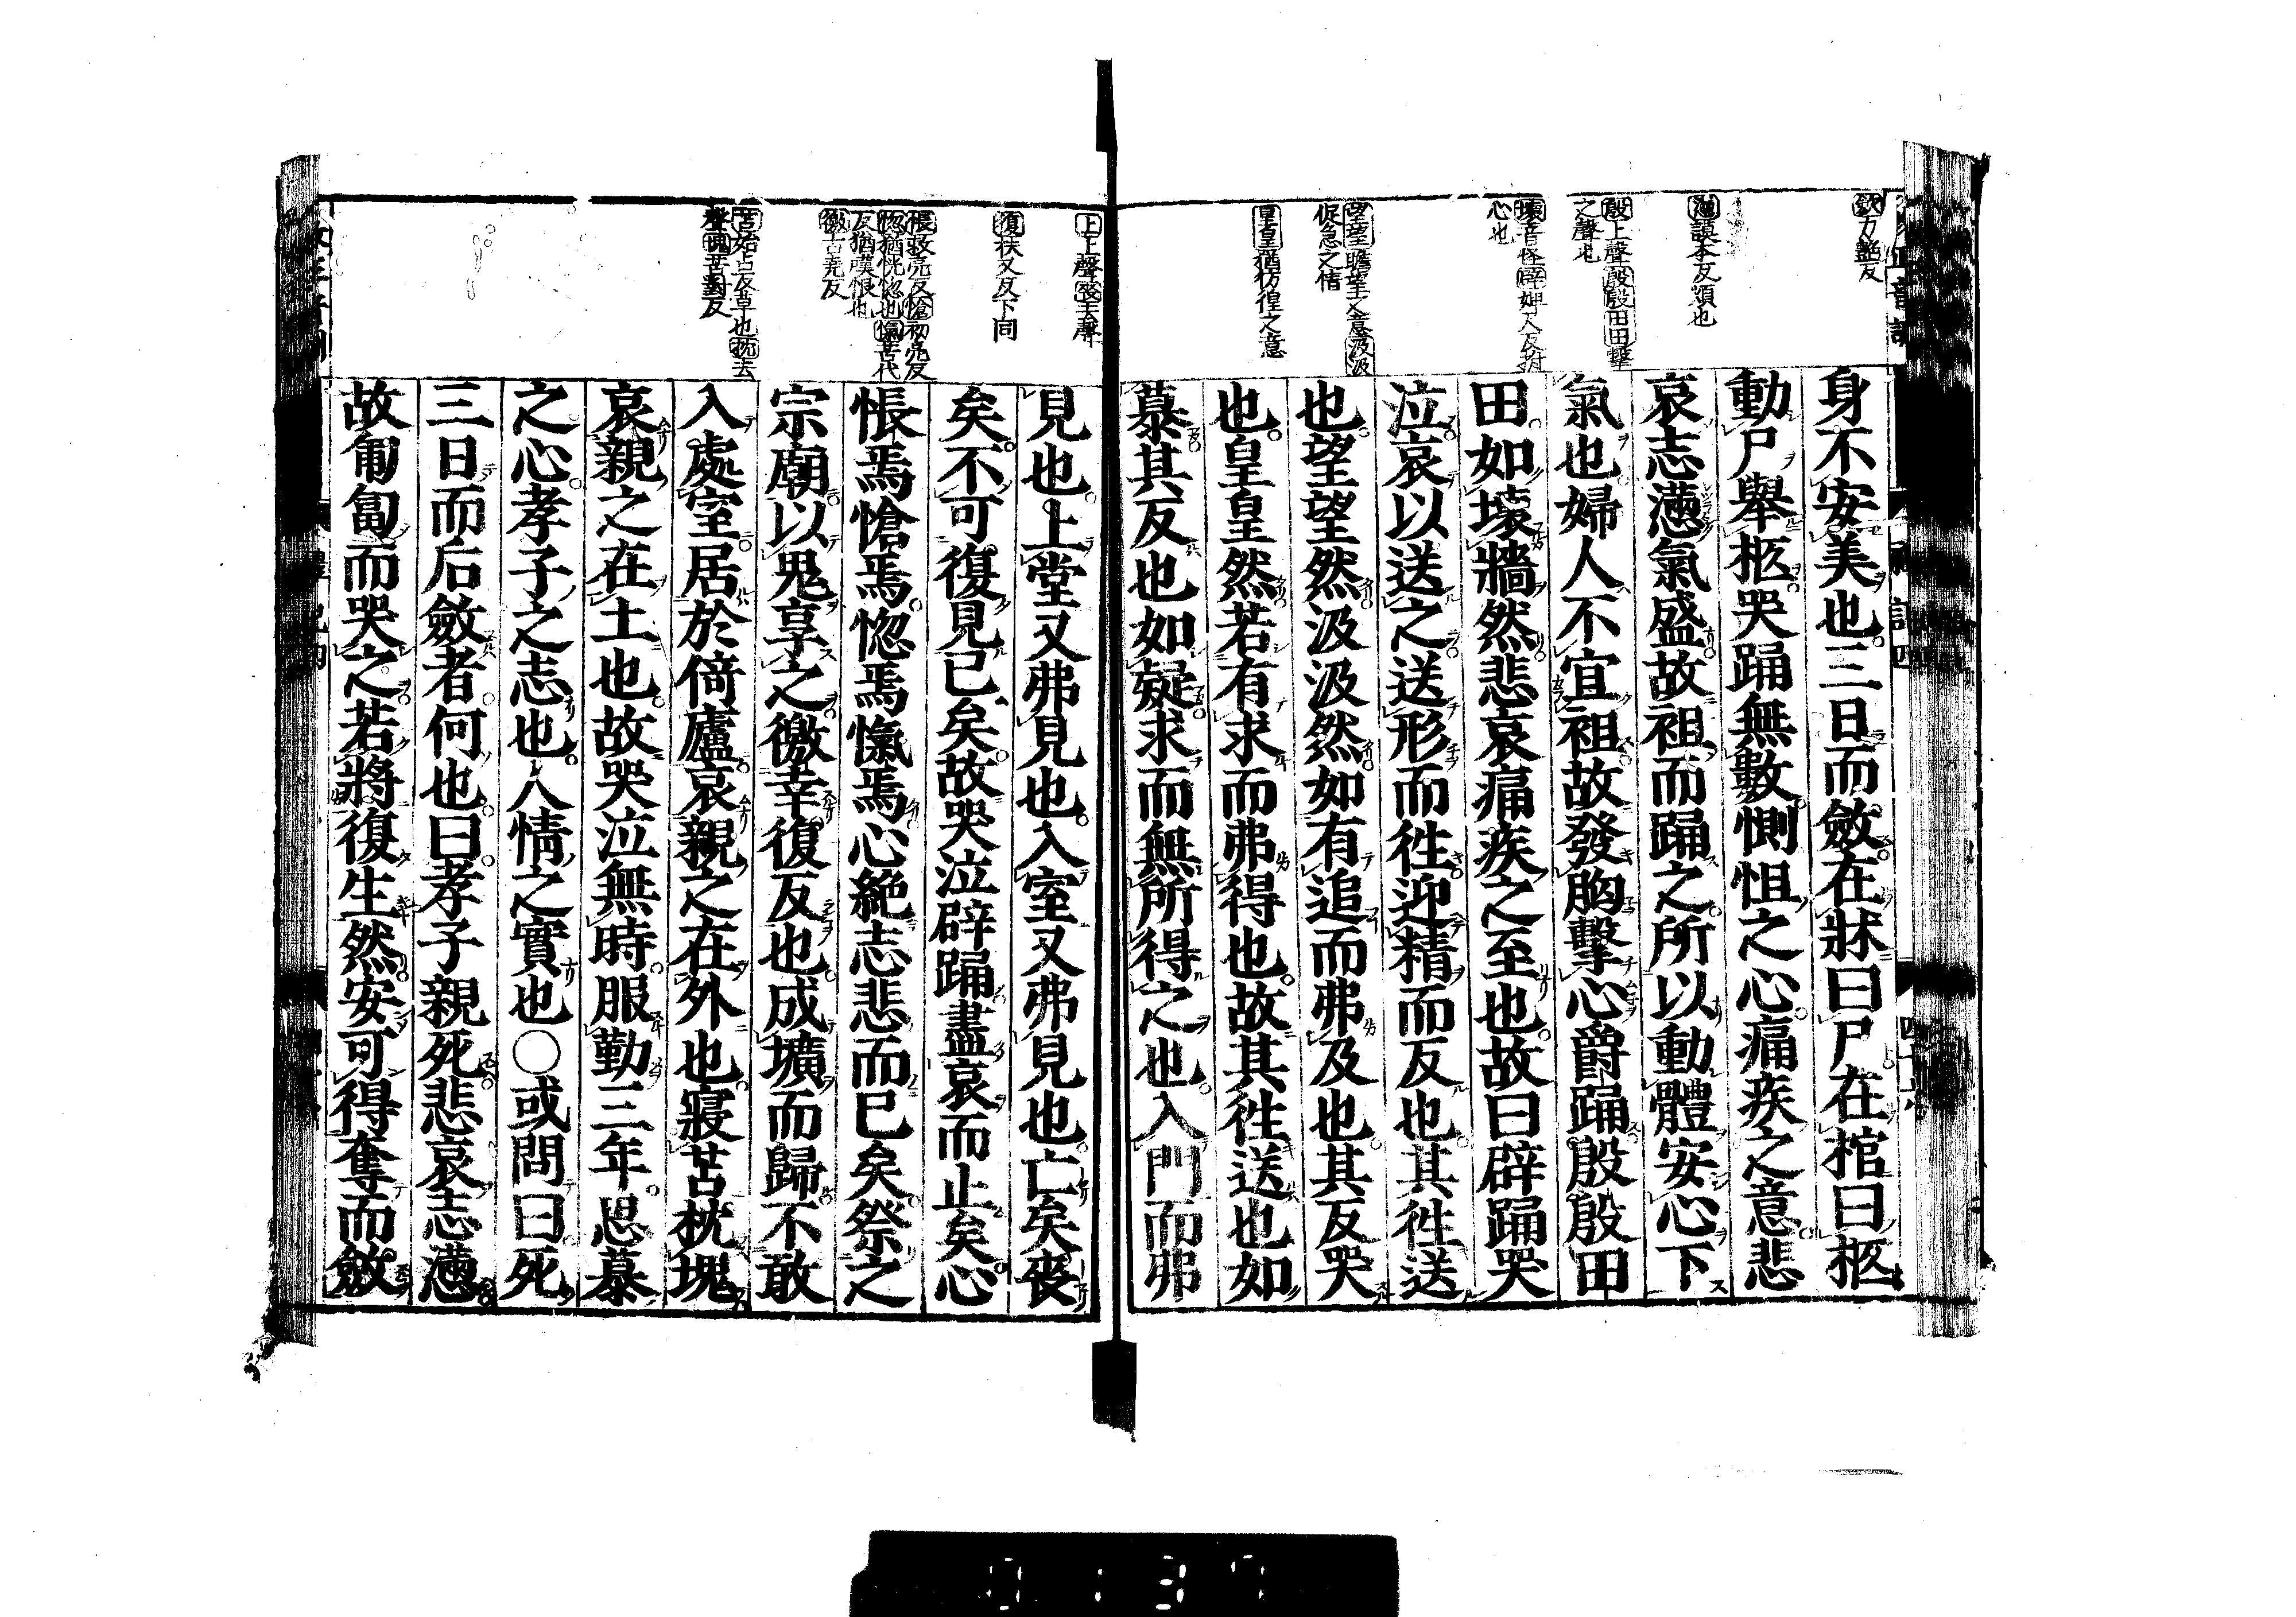 斂力艷反
懣謨本反煩也
殷上聲殷殷田田擊
之聲也
壞音怪辟婢尺反拊
心也
望望瞻望之意汲汲
促急之情
皇皇猶彷徨之意
身不安美也三日而斂在牀曰尸在棺曰柩
動尸舉柩哭踊無數惻怛之心痛疾之意悲
哀志懣氣盛故袒而踊之所以動體安心下
氣也婦人不宜袒故發胸擊心爵踊殷殷田
田如壞牆然悲哀痛疾之至也故曰辟踊哭
泣哀以送之送形而徃迎精而反也其徃送
也望望然汲汲然如有追而弗及也其反哭
也皇皇然若有求而弗得也故其徃送也如
慕其反也如疑求而無所得之也入門而弗
上上聲喪去聲
復扶又反下同
悵敕亮反愴初亮反
惚猶恍惚也愾苦代
反猶嘆恨也
徼古堯反
苫始占反草也枕去
聲塊苦對反
見也上堂又弗見也入室又弗見也亡矣喪
矣不可復見已矣故哭泣辟踊盡哀而止矣心
悵焉愴焉惚焉愾焉心絶志悲而已矣祭之
宗廟以鬼享之徼幸復反也成壙而歸不敢
入處室居於倚廬哀親之在外也寢苫枕塊
哀親之在土也故哭泣無時服勤三年思慕
之心孝子之志也人情之實也〇或問曰死
三日而后斂者何也曰孝子親死悲哀志懣
故匍匐而哭之若將復生然安可得奪而斂